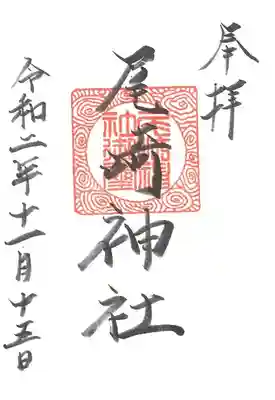 奉拝
尾崎神社
令和二年十一月十五日